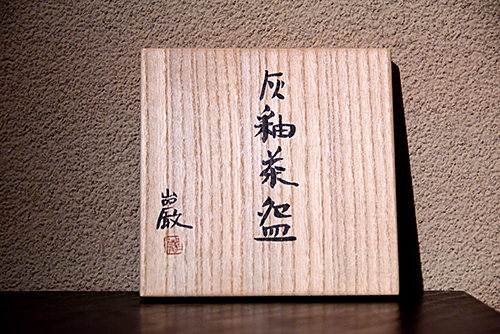 灰釉茶盌
巖